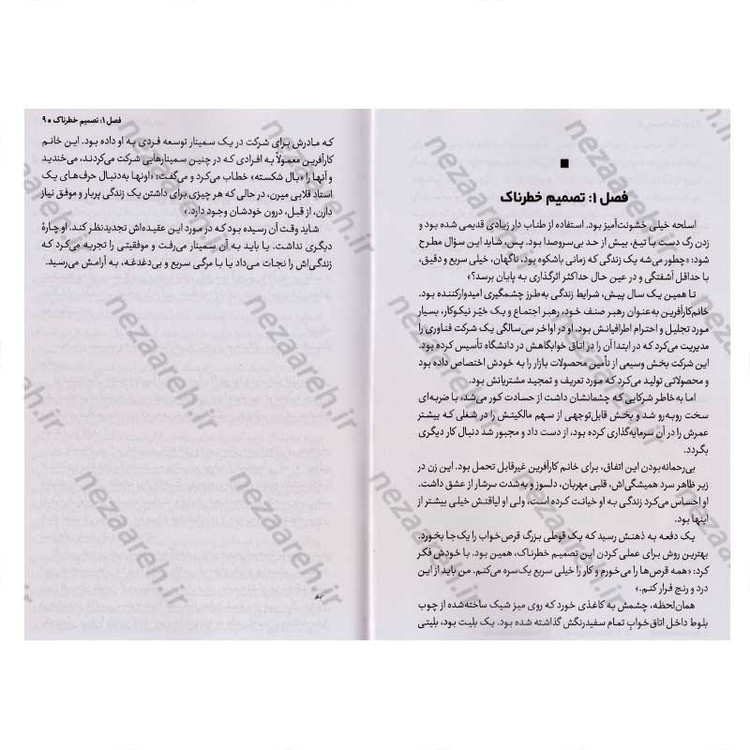 فصل ۱: تصمیم خطرناک
اسلحه خیلی خشونت‌آمیز بود. استفاده از طناب دار زیادی قدیمی شده بود و
زدن رگ دست با تیغ، بیش از حد بی‌سروصدا بود. پس، شاید این سؤال مطرح
شود: «چطور می‌شه یک زندگی که زمانی باشکوه بود، ناگهان، خیلی سریع و دقیق،
با حداقل آشفتگی و در عین حال حداکثر اثرگذاری به پایان برسد؟»
تا همین یک سال پیش، شرایط زندگی به‌طرز چشمگیری امیدوارکننده بود.
خانم‌کارآفرین به‌عنوان رهبر صنف خود، رهبر اجتماع و یک خیّر نیکوکار، بسیار
مورد تجلیل و احترام اطرافیانش بود. او در اواخر سی‌سالگی یک شرکت فناوری را
مدیریت می‌کرد که در ابتدا آن را در اتاق خوابگاهش در دانشگاه تأسیس کرده بود.
این شرکت بخش وسیعی از تأمین محصولات بازار را به خودش اختصاص داده بود
و محصولاتی تولید می‌کرد که مورد تعریف و تمجید مشتریانش بود.
اما به‌خاطر شرکایی که چشمانشان داشت از حسادت کور می‌شد، با ضربه‌ای
سخت روبه‌رو شد و بخش قابل‌توجهی از سهم مالکیتش را در شغلی که بیشتر
عمرش را در آن سرمایه‌گذاری کرده بود، از دست داد و مجبور شد دنبال کار دیگری
بگردد.
بی‌رحمانه‌بودن این اتفاق، برای خانم کارآفرین غیرقابل تحمل بود. این زن در
زیر ظاهر سرد همیشگی‌اش، قلبی مهربان، دلسوز و به‌شدت سرشار از عشق داشت.
او احساس می‌کرد زندگی به او خیانت کرده است، ولی او لیاقتش خیلی بیشتر از
اینها بود.
یک دفعه به ذهنش رسید که یک قوطی بزرگ قرص‌خواب را یک‌جا بخورد.
بهترین روش برای عملی کردن این تصمیم خطرناک، همین بود. با خودش فکر
کرد: «همه قرص‌ها را می‌خورم و کار را خیلی سریع یک‌سره می‌کنم. من باید از این
درد و رنج فرار کنم.»
همان‌لحظه، چشمش به کاغذی خورد که روی میز شیک ساخته‌شده از چوب
بلوط داخل اتاق‌خوابِ تمام سفیدرنگش گذاشته شده بود. یک بلیت بود، بلیتی
فصل ۱: تصمیم خطرناک ■ ۹
که مادرش برای شرکت در یک سمینار توسعه فردی به او داده بود. این خانم
کارآفرین معمولاً به افرادی که در چنین سمینارهایی شرکت می‌کردند، می‌خندید
و آنها را «بال شکسته» خطاب می‌کرد و می‌گفت: «اونها به‌دنبال حرف‌های یک
استاد قلابی میرن، در حالی که هر چیزی برای داشتن یک زندگی پربار و موفق نیاز
دارن، از قبل، درون خودشان وجود دارد.»
شاید وقت آن رسیده بود که در مورد این عقیده‌اش تجدیدنظر کند. او چارهٔ
دیگری نداشت. یا باید به آن سمینار می‌رفت و موفقیتی را تجربه می‌کرد که
زندگی‌اش را نجات می‌داد یا با مرگی سریع و بی‌دغدغه، به آرامش می‌رسید.
nezaareh.ir